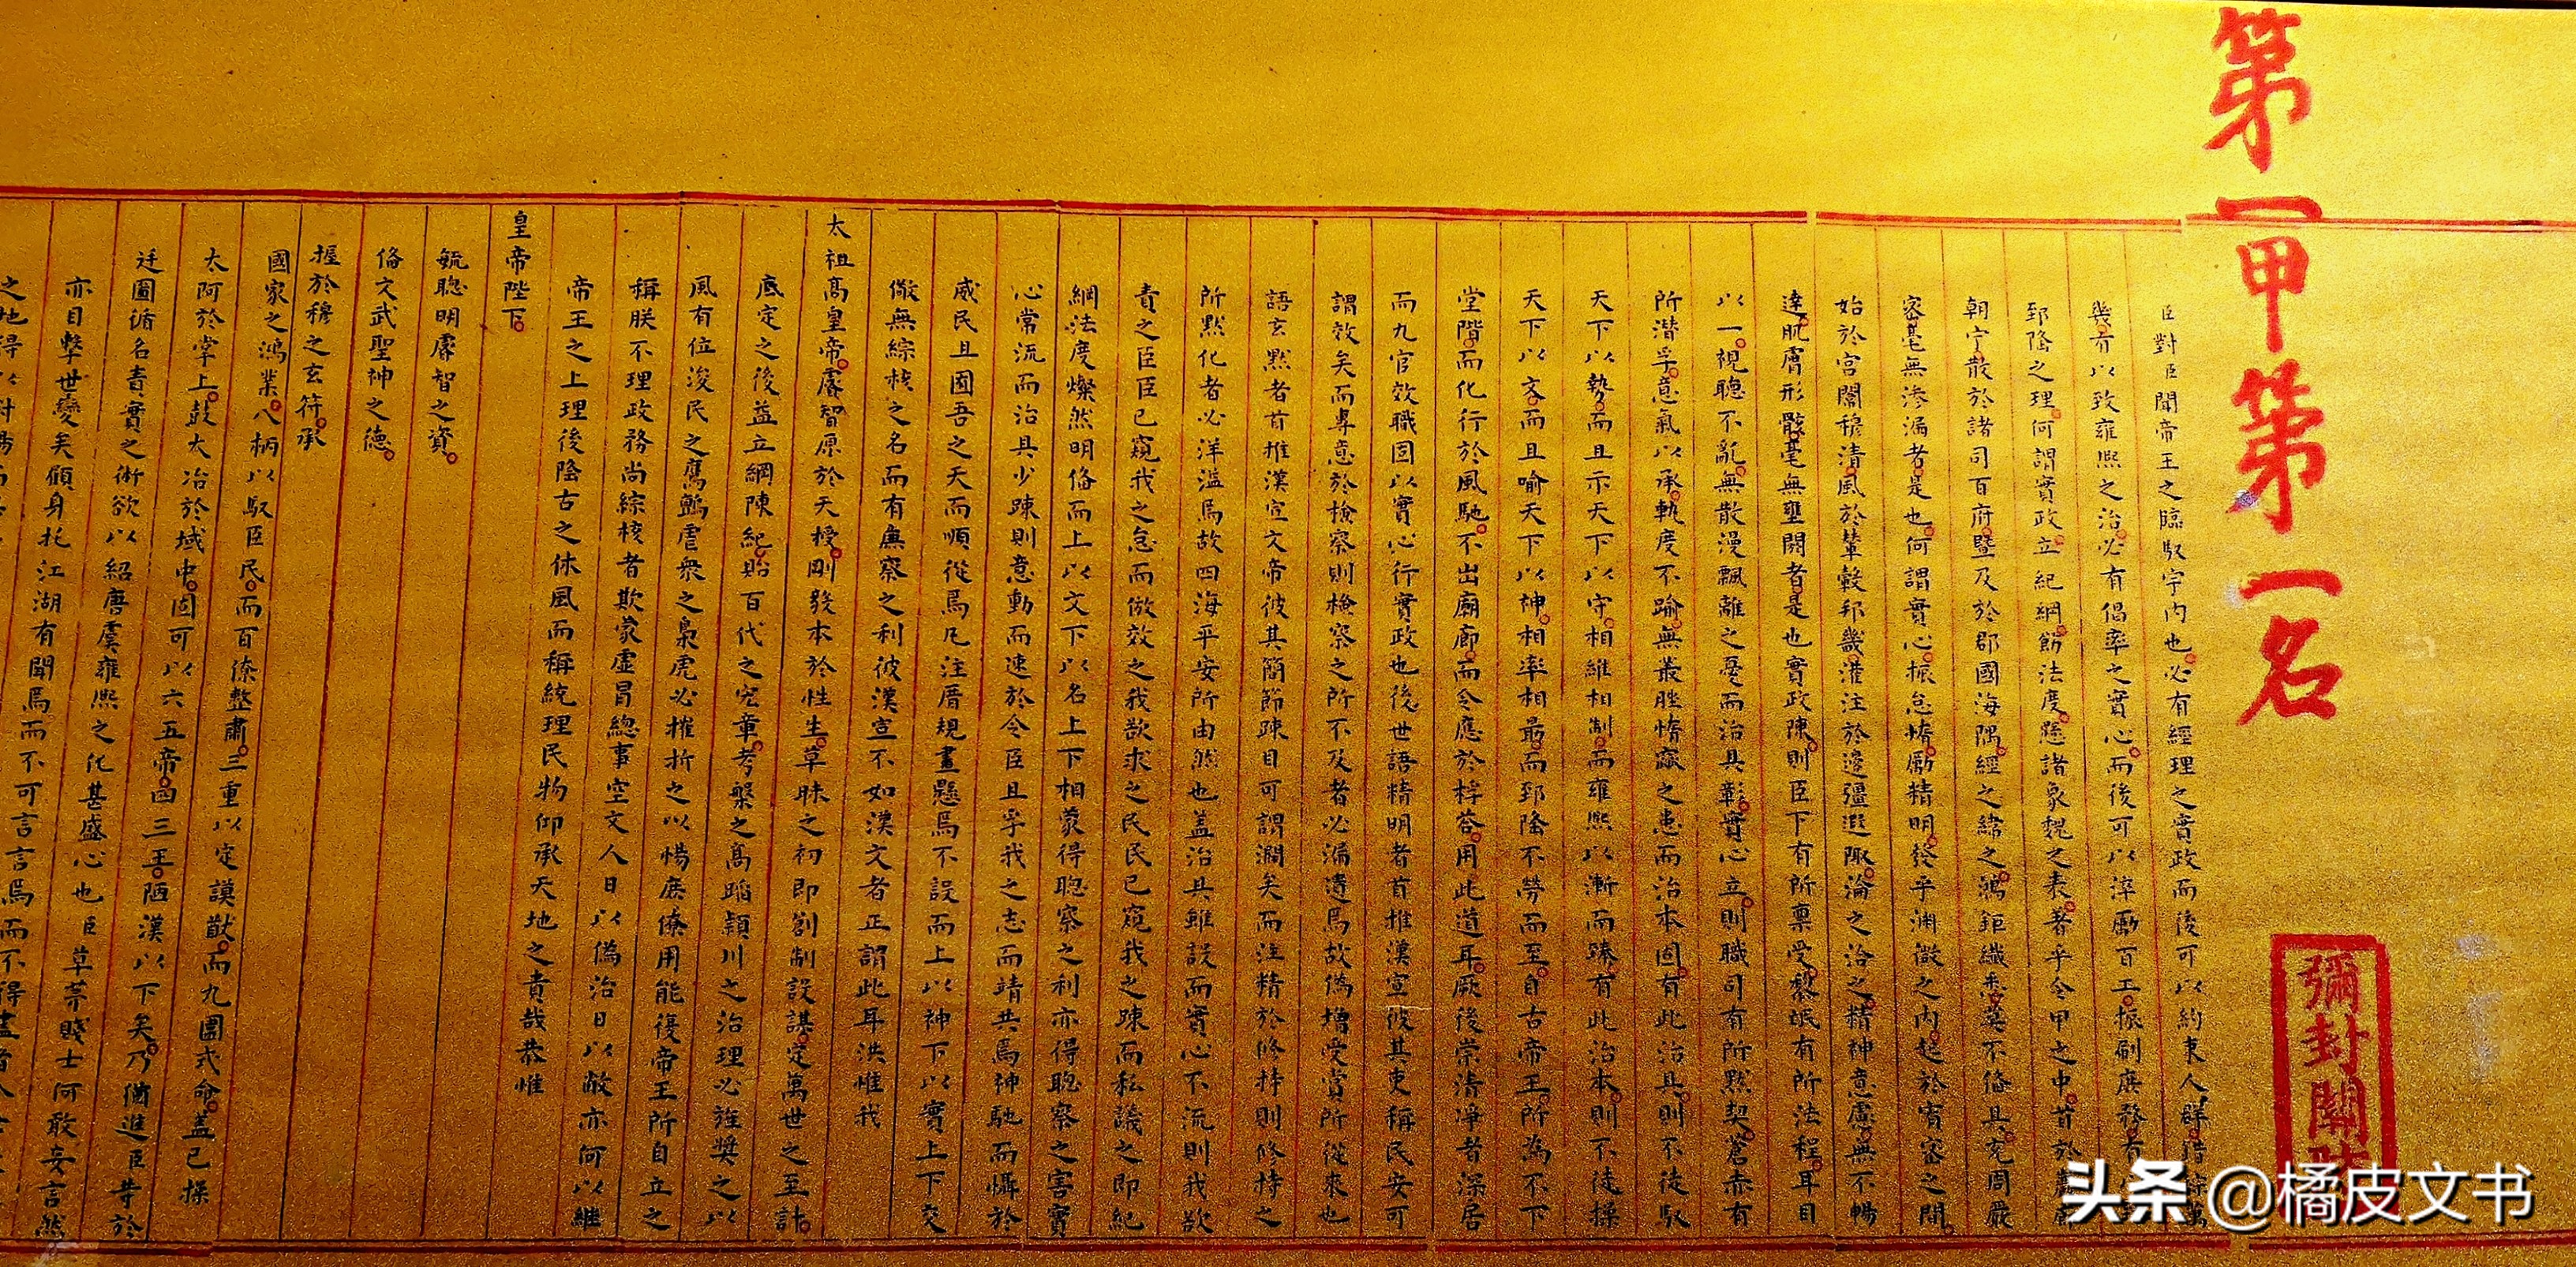 第一甲第一名
彌封關防
臣對臣聞帝王之臨馭宇內也必有經理之實政而後可以約束人群錯綜萬
幾有以致雍熙之治必有倡率之實心而後可以淬勵百工振刷庶務有
郅隆之理何謂實政立紀綱飭法度懸諸象魏之表著乎令甲之中首於巖廊
朝宁散於諸司百府暨及於郡國海隅經之緯之鴻鉅纖悉莫不備具充周嚴
密毫無滲漏者是也何謂實心振怠惰勵精明發乎淵微之內起於宥密之間
始於宮闈穆清風於輦轂邦畿灌注於邊疆遐陬淪之洽之精神意慮無不暢
達肌膚形骸毫無壅閼者是也實政陳則臣下有所稟受黎氓有所法程耳目
以一視聽不亂無散漫飄離之憂而治具彰實心立則職司有所默契蒼赤有
所潛孚意氣以承軌度不踰無叢脞惰窳之患而治本固有此治具則不徒馭
天下以勢而且示天下以守相維相制而雍熙以漸而臻有此治本則不徒操
天下以文而且喻天下以神相率相最而郅隆不勞而至自古帝王所為不下
堂階而化行於風馳不出廟廊而令應於桴答用此道耳厥後崇清淨者深居
而九官效職固以實心行實政也後世語精明者首推漢宣彼其吏稱民安可
謂效矣而專意於檢察則檢察之所不及者必漏遺焉故偽增受賞所從來也
語玄默者首推漢宣文帝彼其簡節疎目可謂濶矣而注精於修持則修持之
所默化者必洋溢焉故四海平安所由然也蓋治具雖設而實心不流則我欲
責之臣臣已窺我之怠而倣效之我欲求之民民已窺我之疎而私議之即紀
綱法度燦然明備而上以文下以名上下相蒙得聰察之利亦得聰察之害實
心常流而治具少疎則意動而速於令臣且孚我之志而靖共焉神馳而懾於
威民且囿吾之天而順從焉凡注厝規畫懸焉不設而上以神下以實上下交
儆無綜核之名而有廉察之利彼漢宣不如漢文者正謂此耳洪惟我
太祖高皇帝睿智原於天授剛發本於性生草昧之初即劄制設謀定萬世之至計
底定之後益立綱陳紀貽百代之宏章考槃之高蹈潁川之治理必旌獎之以
風有位浚民之鷹鸇虐衆之梟虎必摧折之以惕庶僚用能復帝王所自立之
稱朕不理政務尚綜核者欺蒙虛冒總事空文人日以偽治日以敝亦何以繼
帝王之上理後隆古之休風而稱統理民物仰承天地之責哉恭惟
皇帝陛下
毓聰明睿智之資
備文武聖神之德
握於穆之玄符承
國家之鴻業八柄以馭臣民而百僚整肅三重以定謨猷而九圍式命蓋已操
太阿於掌上鼓大冶於域中固可以六五帝四三王陋漢以下矣乃猶進臣等於
廷圖循名責實之術欲以紹唐虞雍熙之化甚盛心也臣草茅賤士何敢妄言然
亦目擊世變矣顧身托江湖有聞焉而不可言言焉而不得盡者
头条 @橘皮文书